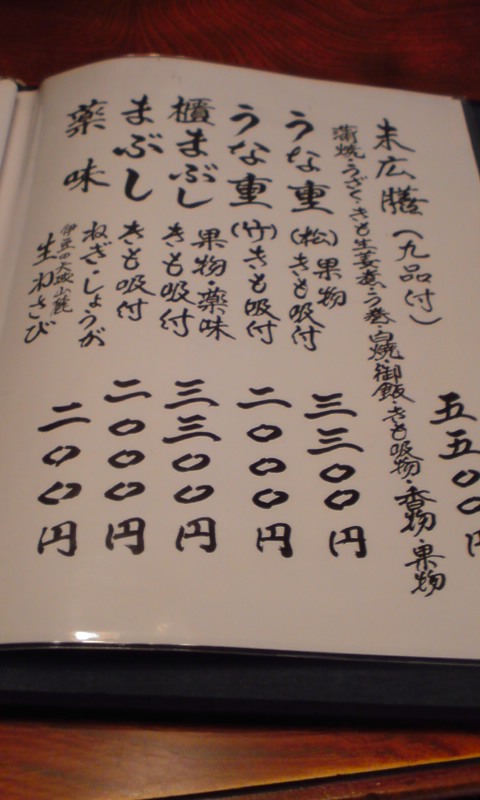 末広膳(九品付) 五五〇〇円
蒲焼・うざく・きも生姜煮・う巻・白焼・御飯・きも吸物・香物・果物
うな重(松) 果物 きも吸付 三三〇〇円
うな重(竹) きも吸付 二〇〇〇円
櫃まぶし 果物・薬味 きも吸付 三三〇〇円
まぶし きも吸付 二〇〇〇円
薬味 ねぎ・しょうが 二〇〇円
伊豆の天城山麓
生わさび